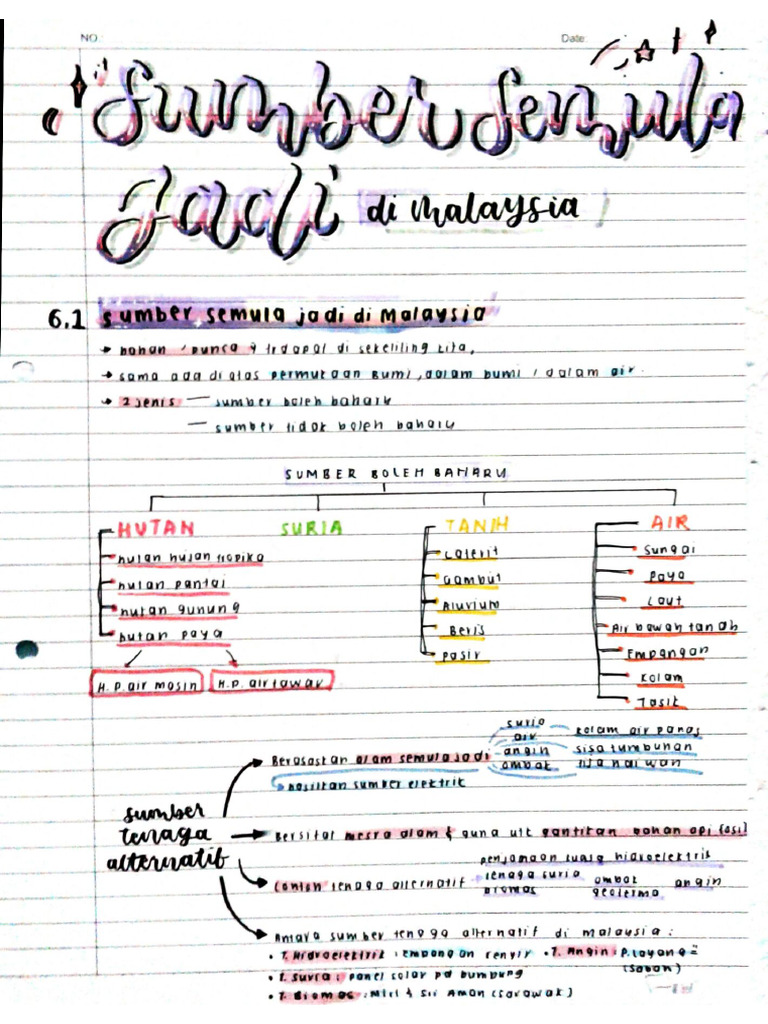 NO.:
Date:
Sumber Semula
Jadi di Malaysia
6.1 sumber semula jadi di Malaysia
→ bahan / punca y terdapat di sekeliling kita,
→ sama ada di atas permukaan Bumi, dalam bumi / dalam air.
→ 2 jenis — sumber boleh baharu
— sumber tidak boleh baharu
SUMBER BOLEH BAHARU
HUTAN SURIA TANIH AIR
hutan hujan tropika
hutan pantai
hutan gunung
hutan paya
H.P. air masin H.P. air tawar
Laterit
Gambut
Aluvium
Beris
Pasir
Sungai
Paya
Laut
Air bawah tanah
Empangan
Kolam
Tasik
sumber
tenaga
alternatif
Berasaskan alam semula jadi
suria
air
angin
ombak
kolam air panas
sisa tumbuhan
sisa haiwan
hasilkan sumber elektrik
Bersifat mesra alam & guna utk gantikan bahan api fosil
penjanaan kuasa hidroelektrik
Contoh tenaga alternatif tenaga suria ombak angin
biomas geoterma
Antara sumber tenaga alternatif di malaysia :
• T. Hidroelektrik : empangan kenyir • T. Angin : P. Layang =
(Sabah)
• T. Suria : panel solar pd bumbung
• T. Biomas : Miri & Sri Aman (Sarawak)